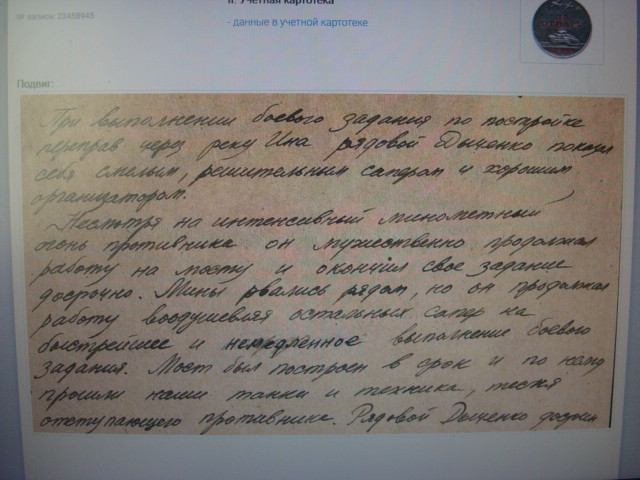 II. Учетная картотека
№ записи 23458945
- данные в учетной картотеке
Подвиг:
При выполнении боевого задания по постройке
переправ через реку Ина рядовой Дыценко показал
себя смелым, решительным сапером и хорошим
организатором.
Несмотря на интенсивный минометный
огонь противника он мужественно продолжал
работу на мосту и окончил свое задание
досрочно. Мины рвались рядом, но он продолжал
работу воодушевляя остальных сапер на
быстрейшее и немедленное выполнение боевого
задания. Мост был построен в срок и по нему
прошли наши танки и техника, тесня
отступающего противника. Рядовой Дыценко достоин